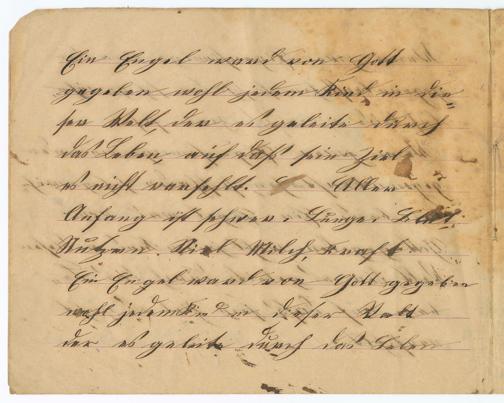 Ein Engel ward von Gott
gegeben wohl jedem Kind in die-
ser Welt, der es geleite durch
das Leben, auf daß sein Ziel
es nicht verfehlt. Aller
Anfang ist schwer.
Viel Milch, Kraft
Ein Engel ward von Gott gegeben
wohl jedem Kind in dieser Welt
der es geleite durch das Leben